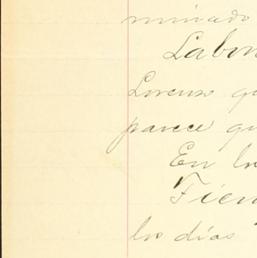 minado
Labor
Lorenzo qu
parece qu
En lo
Tien
los días